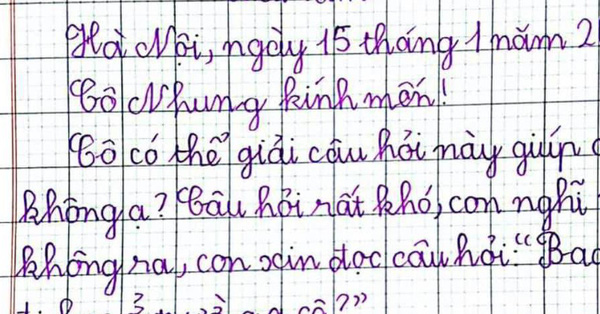 Hà Nội, ngày 15 tháng 1 năm 2
Cô Nhung kính mến!
Cô có thể giải câu hỏi này giúp
không ạ? Câu hỏi rất khó, con nghĩ
không ra, con xin đọc câu hỏi: "Bao
cô?"